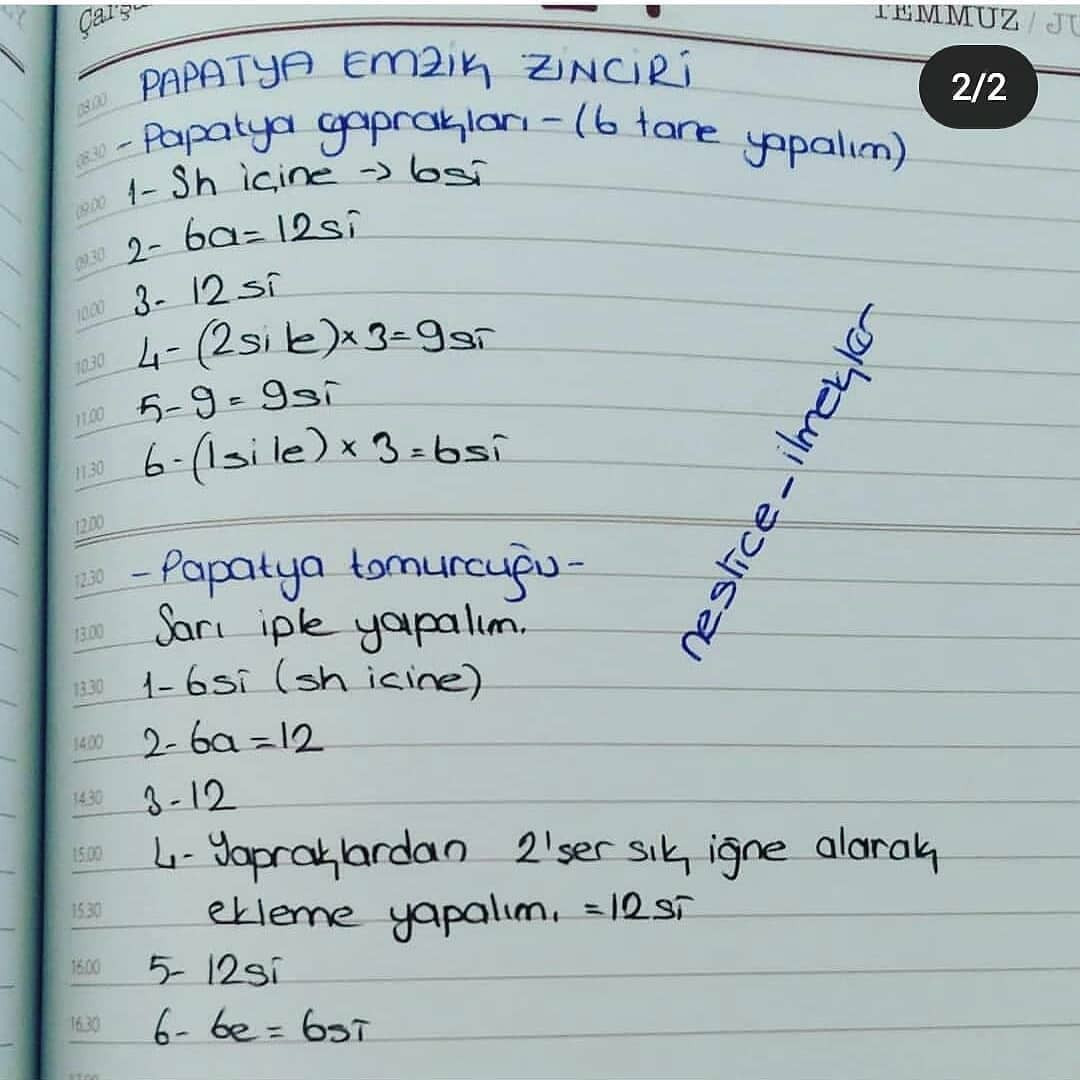 TEMMUZ / JU
2/2
PAPATYA EMZİK ZİNCİRİ
08.00
- Papatya yaprakları - (6 tane yapalım)
08.30
1- Sh içine -> 6si
09.00
2- 6a = 12si
09.30
3- 12 si
10.00
4- (2si 1e) x 3 = 9si
10.30
5- 9 = 9si
11.00
6- (1si 1e) x 3 = 6si
11.30
12.00
- Papatya tomurcuğu -
12.30
Sarı iple yapalım.
13.00
1- 6si (sh icine)
13.30
2- 6a = 12
14.00
3- 12
14.30
4- Yapraklardan 2'ser sık iğne alarak
15.00
ekleme yapalım. = 12si
15.30
5- 12si
16.00
6- 6e = 6si
16.30
neslice - ilmekler